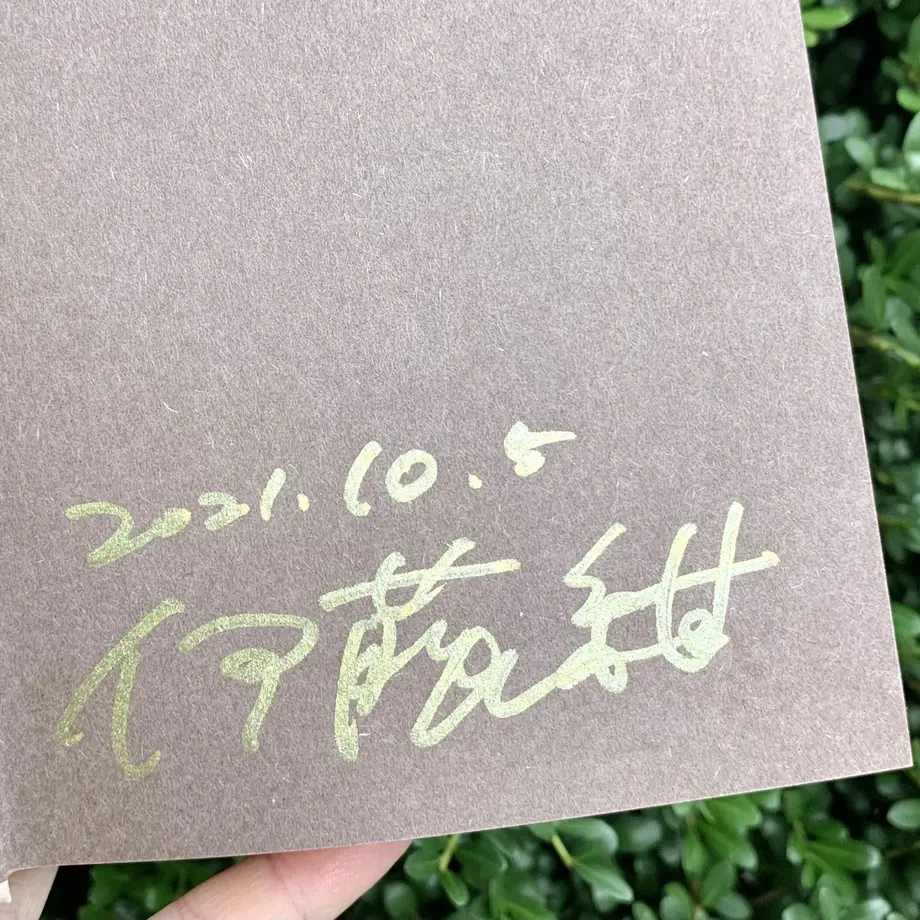 2021.10.5
伊藤紺